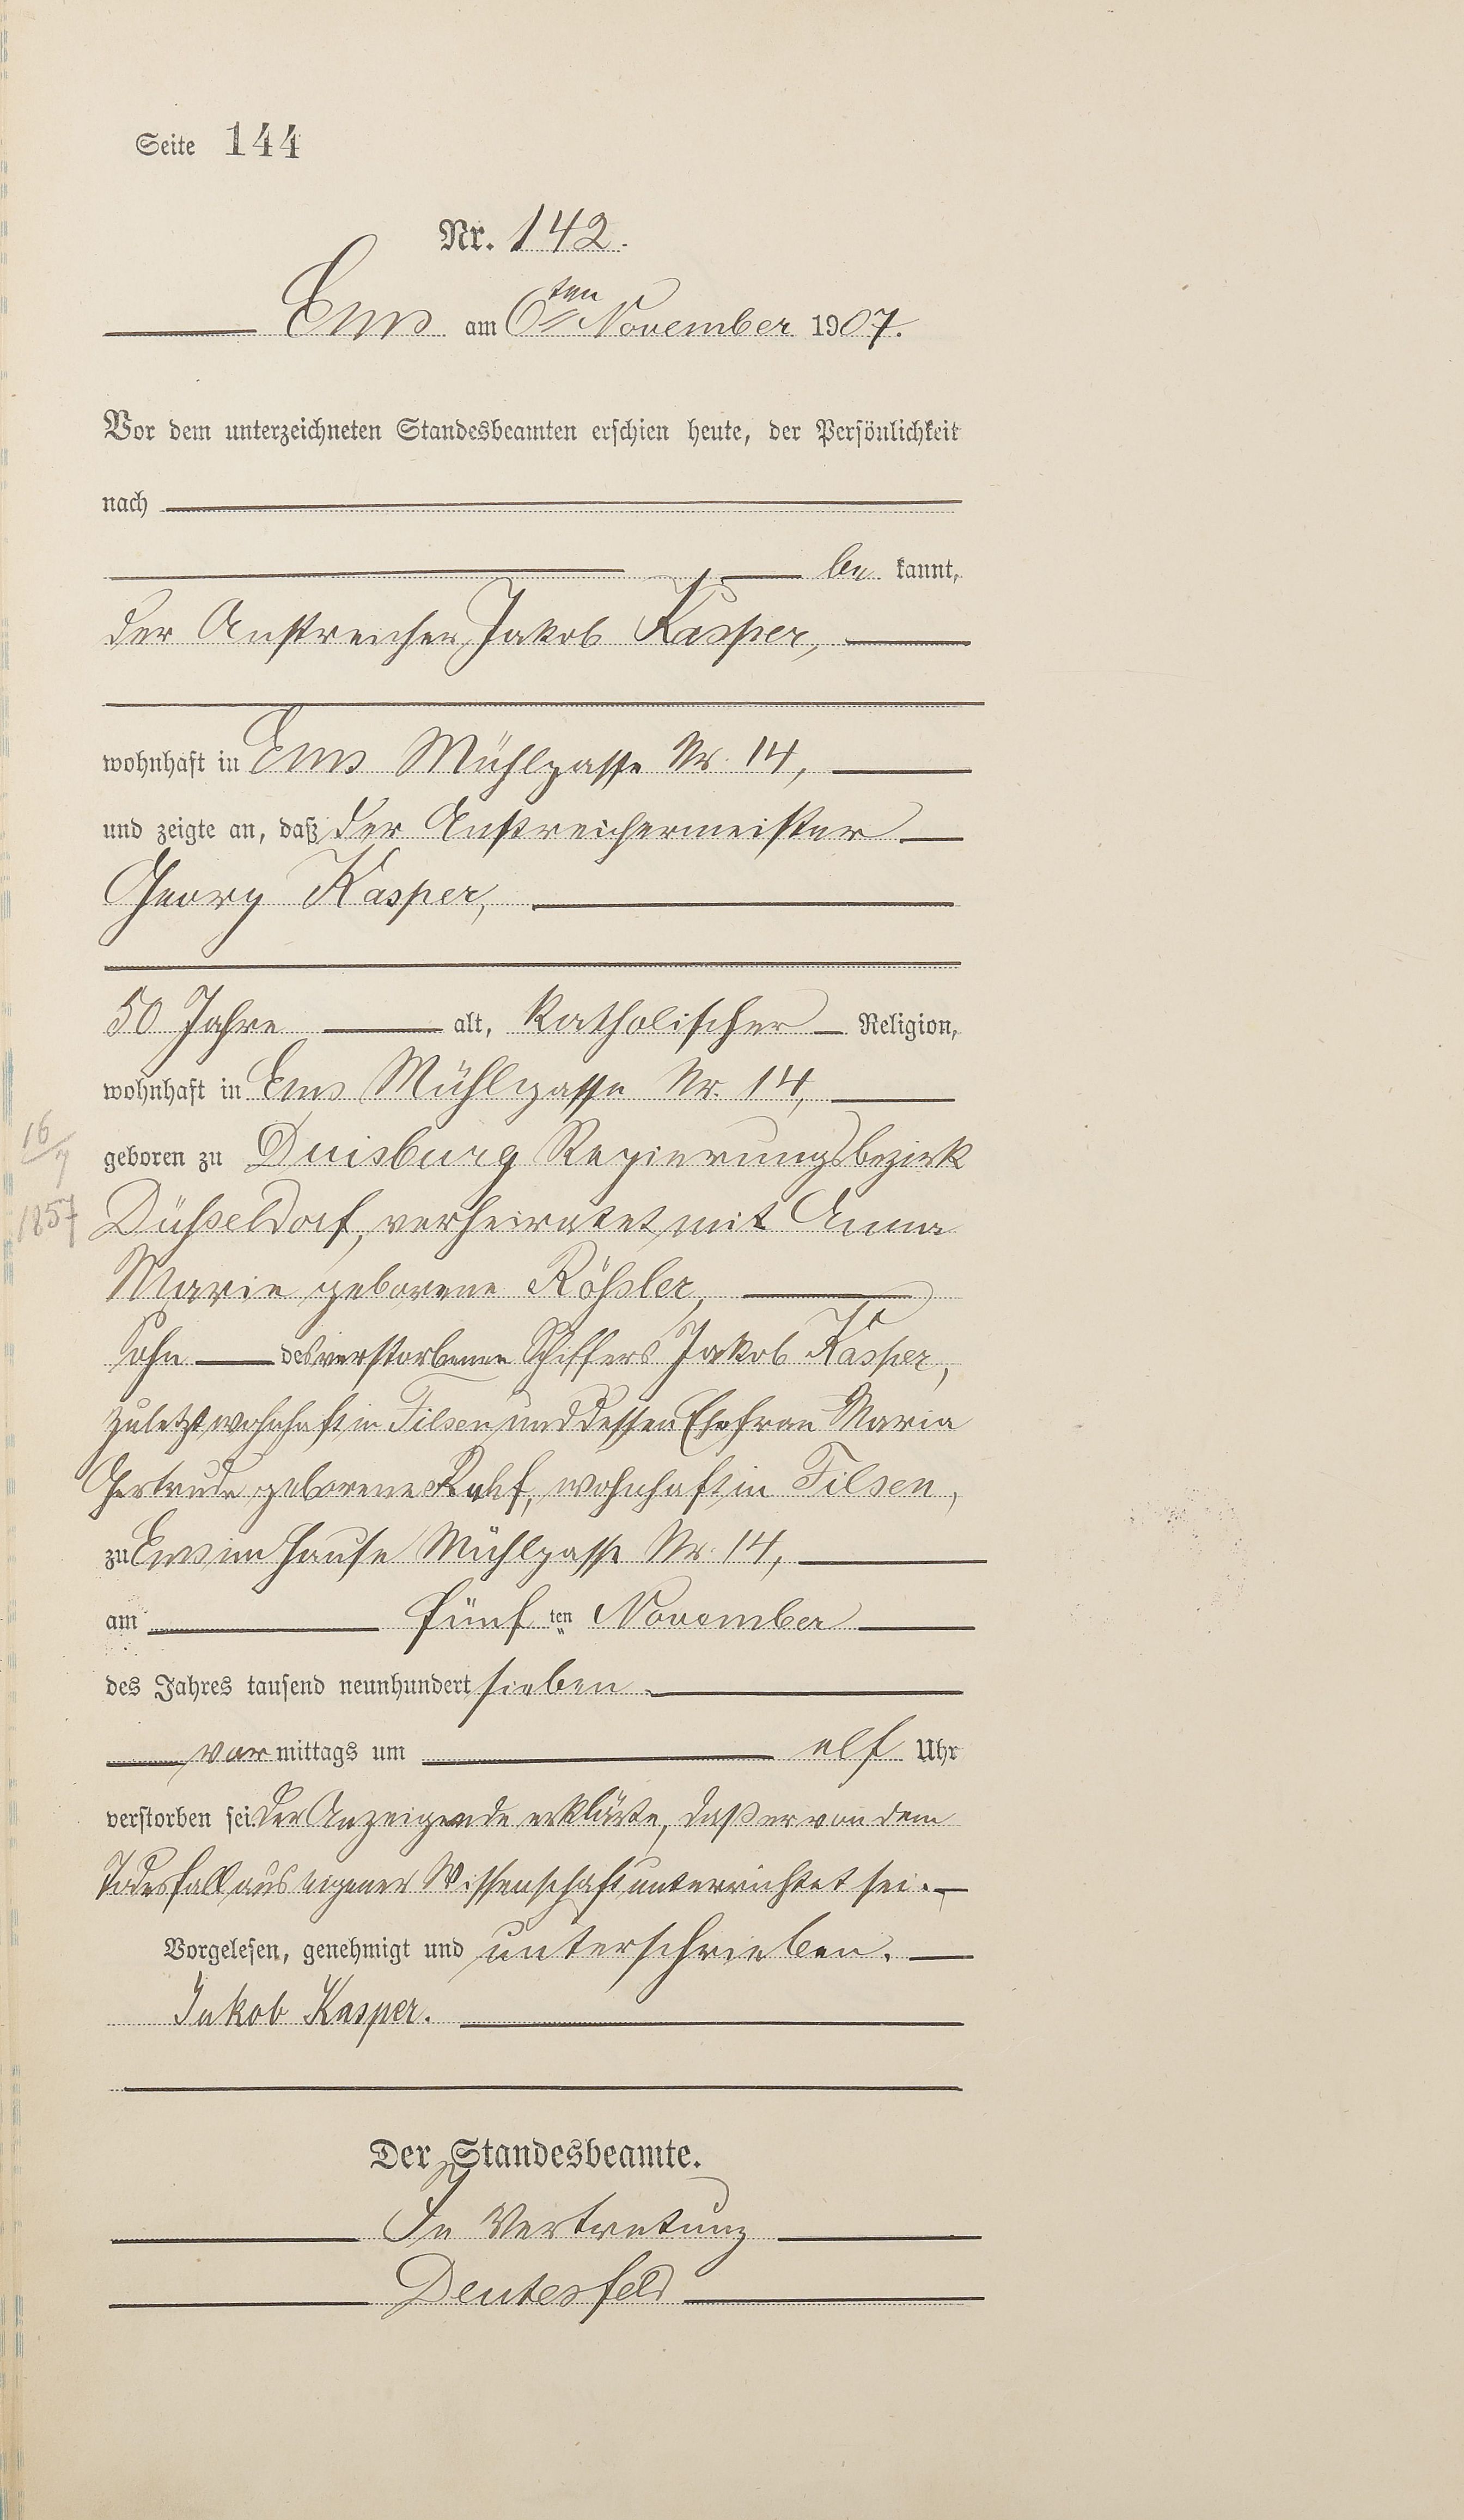 Seite 144
Nr. 142.
Ems am 6ten November 1907.
Vor dem unterzeichneten Standesbeamten erschien heute, der Persönlichkeit
nach
be kannt,
der Anstreicher Jakob Kasper,
wohnhaft in Ems Mühlgasse Nr. 14,
und zeigte an, daß der Anstreichermeister
Georg Kasper,
50 Jahre alt, katholischer Religion,
wohnhaft in Ems Mühlgasse Nr. 14,
16/7
geboren zu Duisburg Regierungsbezirk
1857
Düßseldorf, verheiratet mit Anna
Marie geborene Rößler,
Sohn des verstorbenen Schiffers Jakob Kasper,
zuletzt wohnhaft in Filsen und dessen Ehefrau Maria
Gertrude geborene wohnhaft in Filsen,
zu Ems im Hause Mühlgasse Nr. 14,
am fünf ten November
des Jahres tausend neunhundert sieben
vor mittags um elf Uhr
verstorben sei. Der Anzeigende erklärte, daß er von dem
Todesfall aus eigener Wissenschaft unterrichtet sei.
Vorgelesen, genehmigt und unterschrieben.
Jakob Kasper.
Der Standesbeamte.
In Vertretung
Deutesfeld